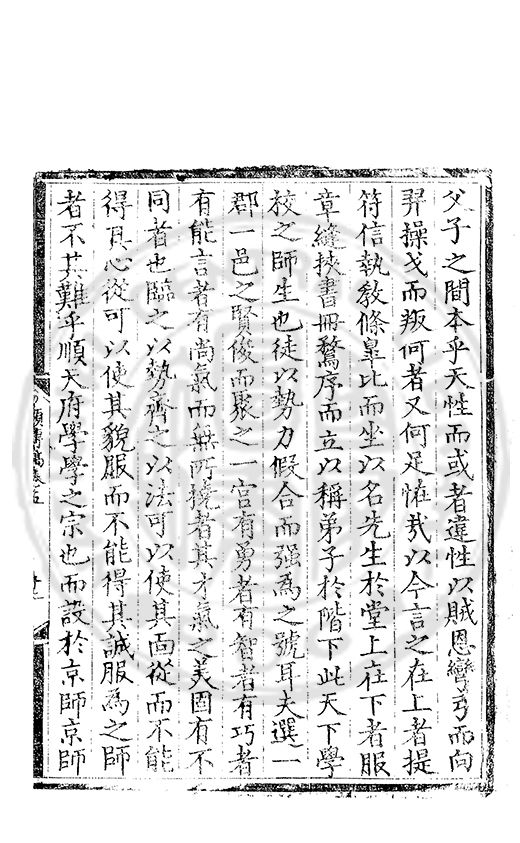 父子之間本乎天性而或者違性以賊恩彎弓而向
羿操戈而叛何者又何足恠㢤以今言之在上者提
符信執教條臯比而坐以名先生於堂上在下者服
章縫挾書冊鶩序而立以稱弟子於階下此天下學
校之師生也徒以勢力假合而强為之號耳夫選一
郡一邑之賢俊而聚之一宫有勇者有智者有巧者
有能言者有尚氣而無所撓者其才氣之美固有不
同者也臨之以勢齊之以法可以使其面從而不能
得其心從可以使其貌服而不能得其誠服為之師
者不其難乎順天府學學之宗也而設於京師京師